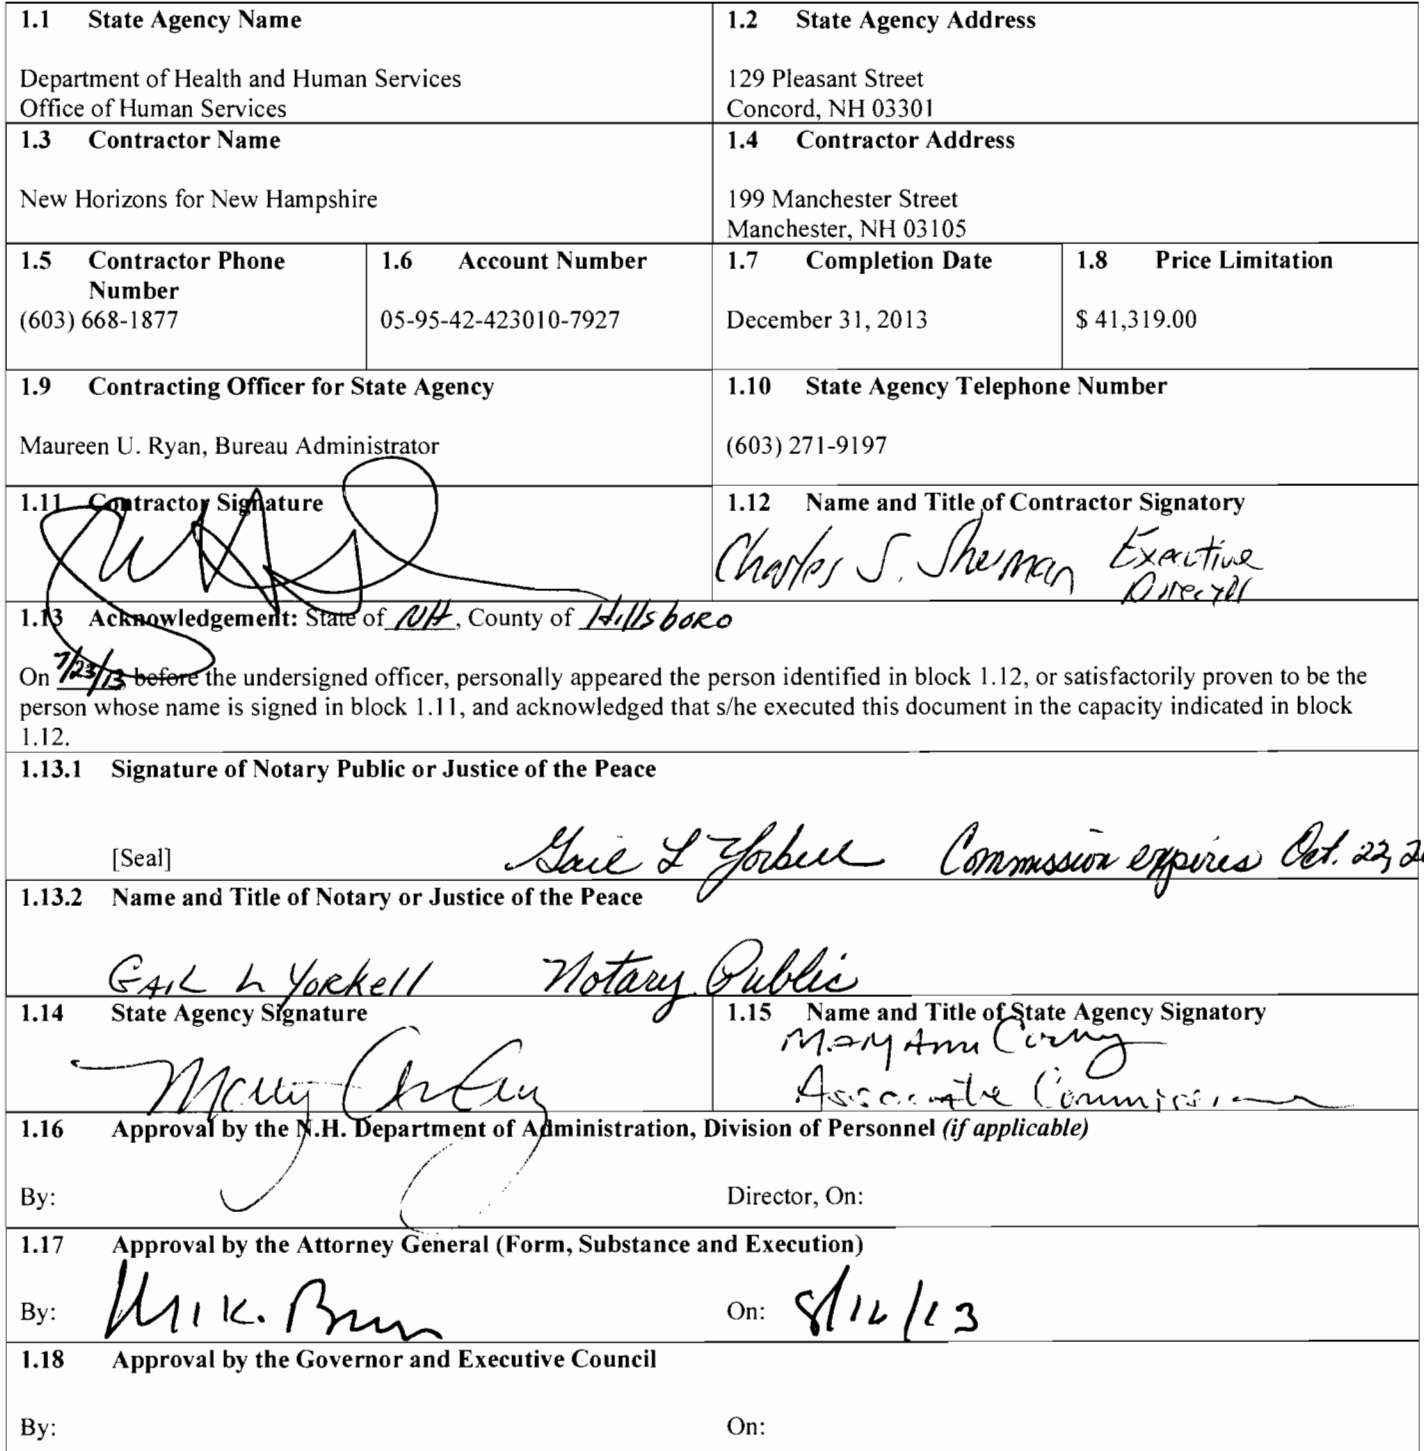 1.1 State Agency Name
1.2 State Agency Address
Department of Health and Human Services
Office of Human Services
129 Pleasant Street
Concord, NH 03301
1.3 Contractor Name
1.4 Contractor Address
New Horizons for New Hampshire
199 Manchester Street
Manchester, NH 03105
1.5 Contractor Phone
Number
(603) 668-1877
1.6 Account Number
05-95-42-423010-7927
1.7 Completion Date
December 31, 2013
1.8 Price Limitation
$ 41,319.00
1.9 Contracting Officer for State Agency
Maureen U. Ryan, Bureau Administrator
1.10 State Agency Telephone Number
(603) 271-9197
1.11 Contractor Signature
1.12 Name and Title of Contractor Signatory
Charles S. Sherman Executive
Director
1.13 Acknowledgement: State of NH, County of Hillsboro
On 7/23/13 before the undersigned officer, personally appeared the person identified in block 1.12, or satisfactorily proven to be the
person whose name is signed in block 1.11, and acknowledged that s/he executed this document in the capacity indicated in block
1.12.
1.13.1 Signature of Notary Public or Justice of the Peace
[Seal]
Gail L Commission expires Oct. 22, 2
1.13.2 Name and Title of Notary or Justice of the Peace
GAIL L Yorkell Notary Public
1.14 State Agency Signature
1.15 Name and Title of State Agency Signatory
Mary Ann
Associate Commissioner
1.16 Approval by the N.H. Department of Administration, Division of Personnel (if applicable)
By:
Director, On:
1.17 Approval by the Attorney General (Form, Substance and Execution)
By:
On:
1.18 Approval by the Governor and Executive Council
By:
On: